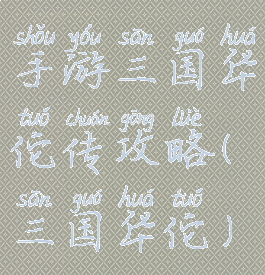 shǒu yóu sān guó huá
手游三国华
tuó chuán gōng lüè
佗传攻略(
sān guó huá tuó
三国华佗)